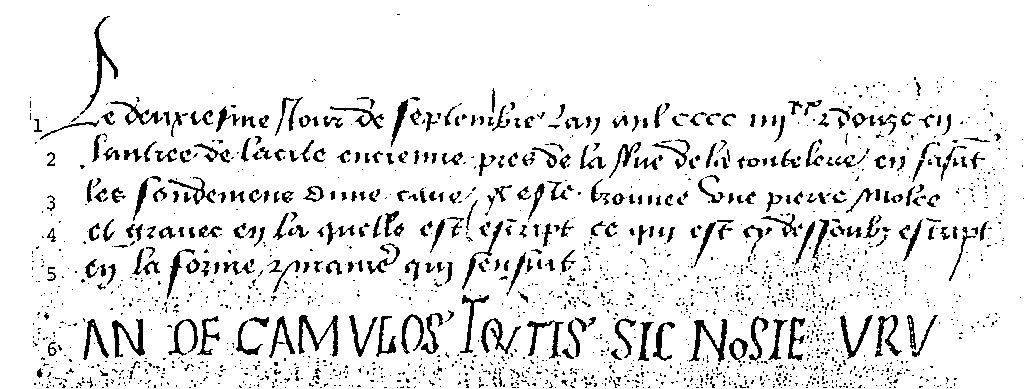 1 Le deuxiesme Jour de septembre Lan mil cccc iiijxx & douze en
2 lantree de la cite encienne pres de la Rue de la coutelerie en fasāt
3 les fondemens dune cave / y a este trouvee Une pierre Molee
4 et gravee en la quelle est escript ce qui est cy dessoubz escript
5 en la forme & maniere qui sensuit
6 AN DE CAMVLOS' TOVTIS' SIC NOSIE VRV